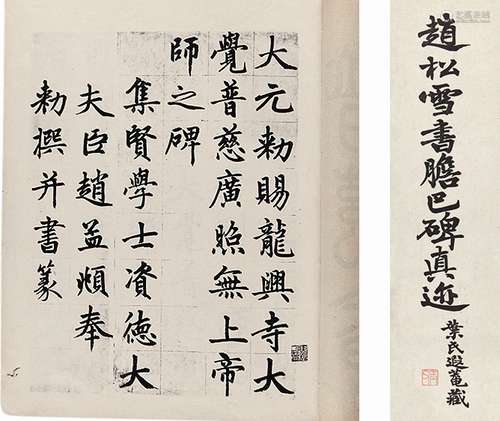 趙松雪書膽巴碑真迹
葉氏遐菴藏
大元勅賜龍興寺大
覺普慈廣照無上帝
師之碑
集賢學士資德大
夫臣趙孟頫奉
勅撰并書篆